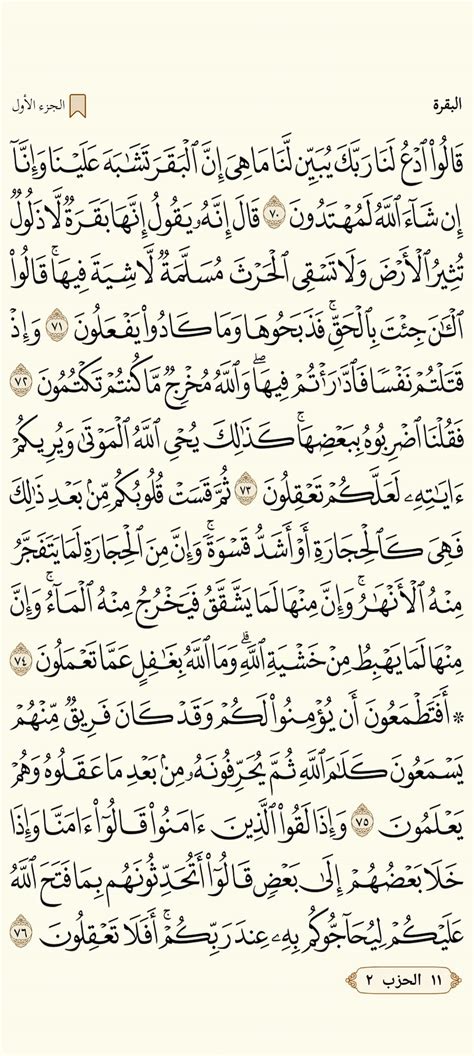 البقرة الجزء الأول
قَالُوا۟ ٱدۡعُ لَنَا رَبَّكَ يُبَيِّن لَّنَا مَا هِيَ إِنَّ ٱلۡبَقَرَ تَشَٰبَهَ عَلَيۡنَا وَإِنَّآ
إِن شَآءَ ٱللَّهُ لَمُهۡتَدُونَ ٧٠ قَالَ إِنَّهُۥ يَقُولُ إِنَّهَا بَقَرَةٞ لَّا ذَلُولٞ
تُثِيرُ ٱلۡأَرۡضَ وَلَا تَسۡقِي ٱلۡحَرۡثَ مُسَلَّمَةٞ لَّا شِيَةَ فِيهَاۚ قَالُوا۟
ٱلۡـَٰٔنَ جِئۡتَ بِٱلۡحَقِّۚ فَذَبَحُوهَا وَمَا كَادُوا۟ يَفۡعَلُونَ ٧١ وَإِذۡ
قَتَلۡتُمۡ نَفۡسٗا فَٱدَّٰرَٰٔتُمۡ فِيهَاۖ وَٱللَّهُ مُخۡرِجٞ مَّا كُنتُمۡ تَكۡتُمُونَ ٧٢
فَقُلۡنَا ٱضۡرِبُوهُ بِبَعۡضِهَاۚ كَذَٰلِكَ يُحۡيِ ٱللَّهُ ٱلۡمَوۡتَىٰ وَيُرِيكُمۡ
ءَايَٰتِهِۦ لَعَلَّكُمۡ تَعۡقِلُونَ ٧٣ ثُمَّ قَسَتۡ قُلُوبُكُم مِّنۢ بَعۡدِ ذَٰلِكَ
فَهِيَ كَٱلۡحِجَارَةِ أَوۡ أَشَدُّ قَسۡوَةٗۚ وَإِنَّ مِنَ ٱلۡحِجَارَةِ لَمَا يَتَفَجَّرُ
مِنۡهُ ٱلۡأَنۡهَٰرُۚ وَإِنَّ مِنۡهَا لَمَا يَشَّقَّقُ فَيَخۡرُجُ مِنۡهُ ٱلۡمَآءُۚ وَإِنَّ
مِنۡهَا لَمَا يَهۡبِطُ مِنۡ خَشۡيَةِ ٱللَّهِۗ وَمَا ٱللَّهُ بِغَٰفِلٍ عَمَّا تَعۡمَلُونَ ٧٤
۞ أَفَتَطۡمَعُونَ أَن يُؤۡمِنُوا۟ لَكُمۡ وَقَدۡ كَانَ فَرِيقٞ مِّنۡهُمۡ
يَسۡمَعُونَ كَلَٰمَ ٱللَّهِ ثُمَّ يُحَرِّفُونَهُۥ مِنۢ بَعۡدِ مَا عَقَلُوهُ وَهُمۡ
يَعۡلَمُونَ ٧٥ وَإِذَا لَقُوا۟ ٱلَّذِينَ ءَامَنُوا۟ قَالُوٓا۟ ءَامَنَّا وَإِذَا
خَلَا بَعۡضُهُمۡ إِلَىٰ بَعۡضٖ قَالُوٓا۟ أَتُحَدِّثُونَهُم بِمَا فَتَحَ ٱللَّهُ
عَلَيۡكُمۡ لِيُحَآجُّوكُم بِهِۦ عِندَ رَبِّكُمۡۚ أَفَلَا تَعۡقِلُونَ ٧٦
١١ الحزب ٢